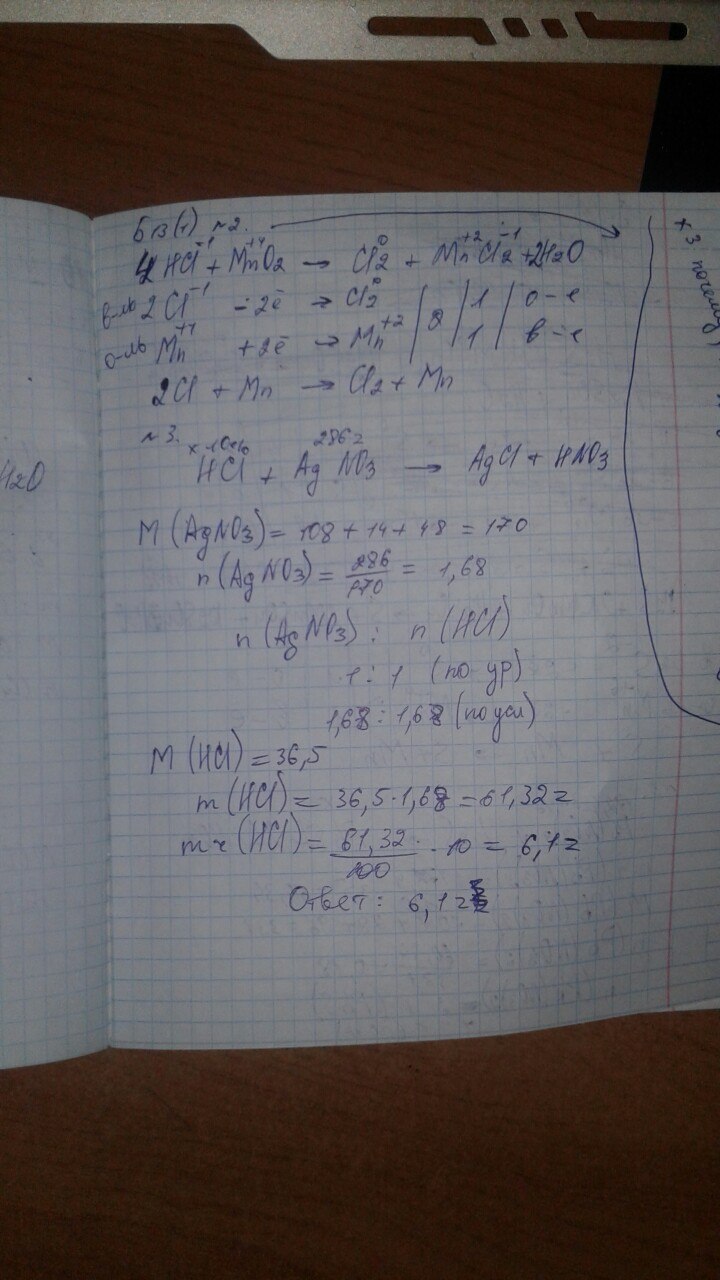 Б 13(1) №2.
4HCl⁻¹ + Mn⁺⁴O2 → Cl2⁰ + Mn⁺²Cl2⁻¹ + 2H2O
в-ль 2Cl⁻¹ - 2ē → Cl2⁰ | 2 | 1 | о-е
о-ль Mn⁺⁴ + 2ē → Mn⁺² | 1 | в-е
2Cl + Mn → Cl2 + Mn
№3. x 10% 286г
HCl + AgNO3 → AgCl + HNO3
M(AgNO3) = 108 + 14 + 48 = 170
n(AgNO3) = 286/170 = 1,68
n(AgNO3) : n(HCl)
1 : 1 (по ур)
1,68 : 1,68 (по усл)
M(HCl) = 36,5
m(HCl) = 36,5 · 1,68 = 61,32г
m ч (HCl) = 61,32/100 · 10 = 6,1г
Ответ: 6,1г
H2O
+ 3 почему